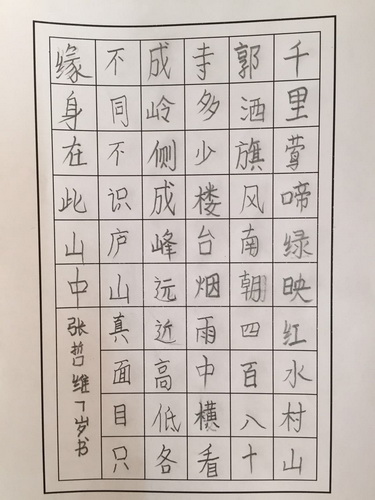 千里莺啼绿映红水村山
郭洒旗风南朝四百八十
寺多少楼台烟雨中横看
成岭侧成峰远近高低各
不同不识庐山真面目只
缘身在此山中
张哲维7岁书